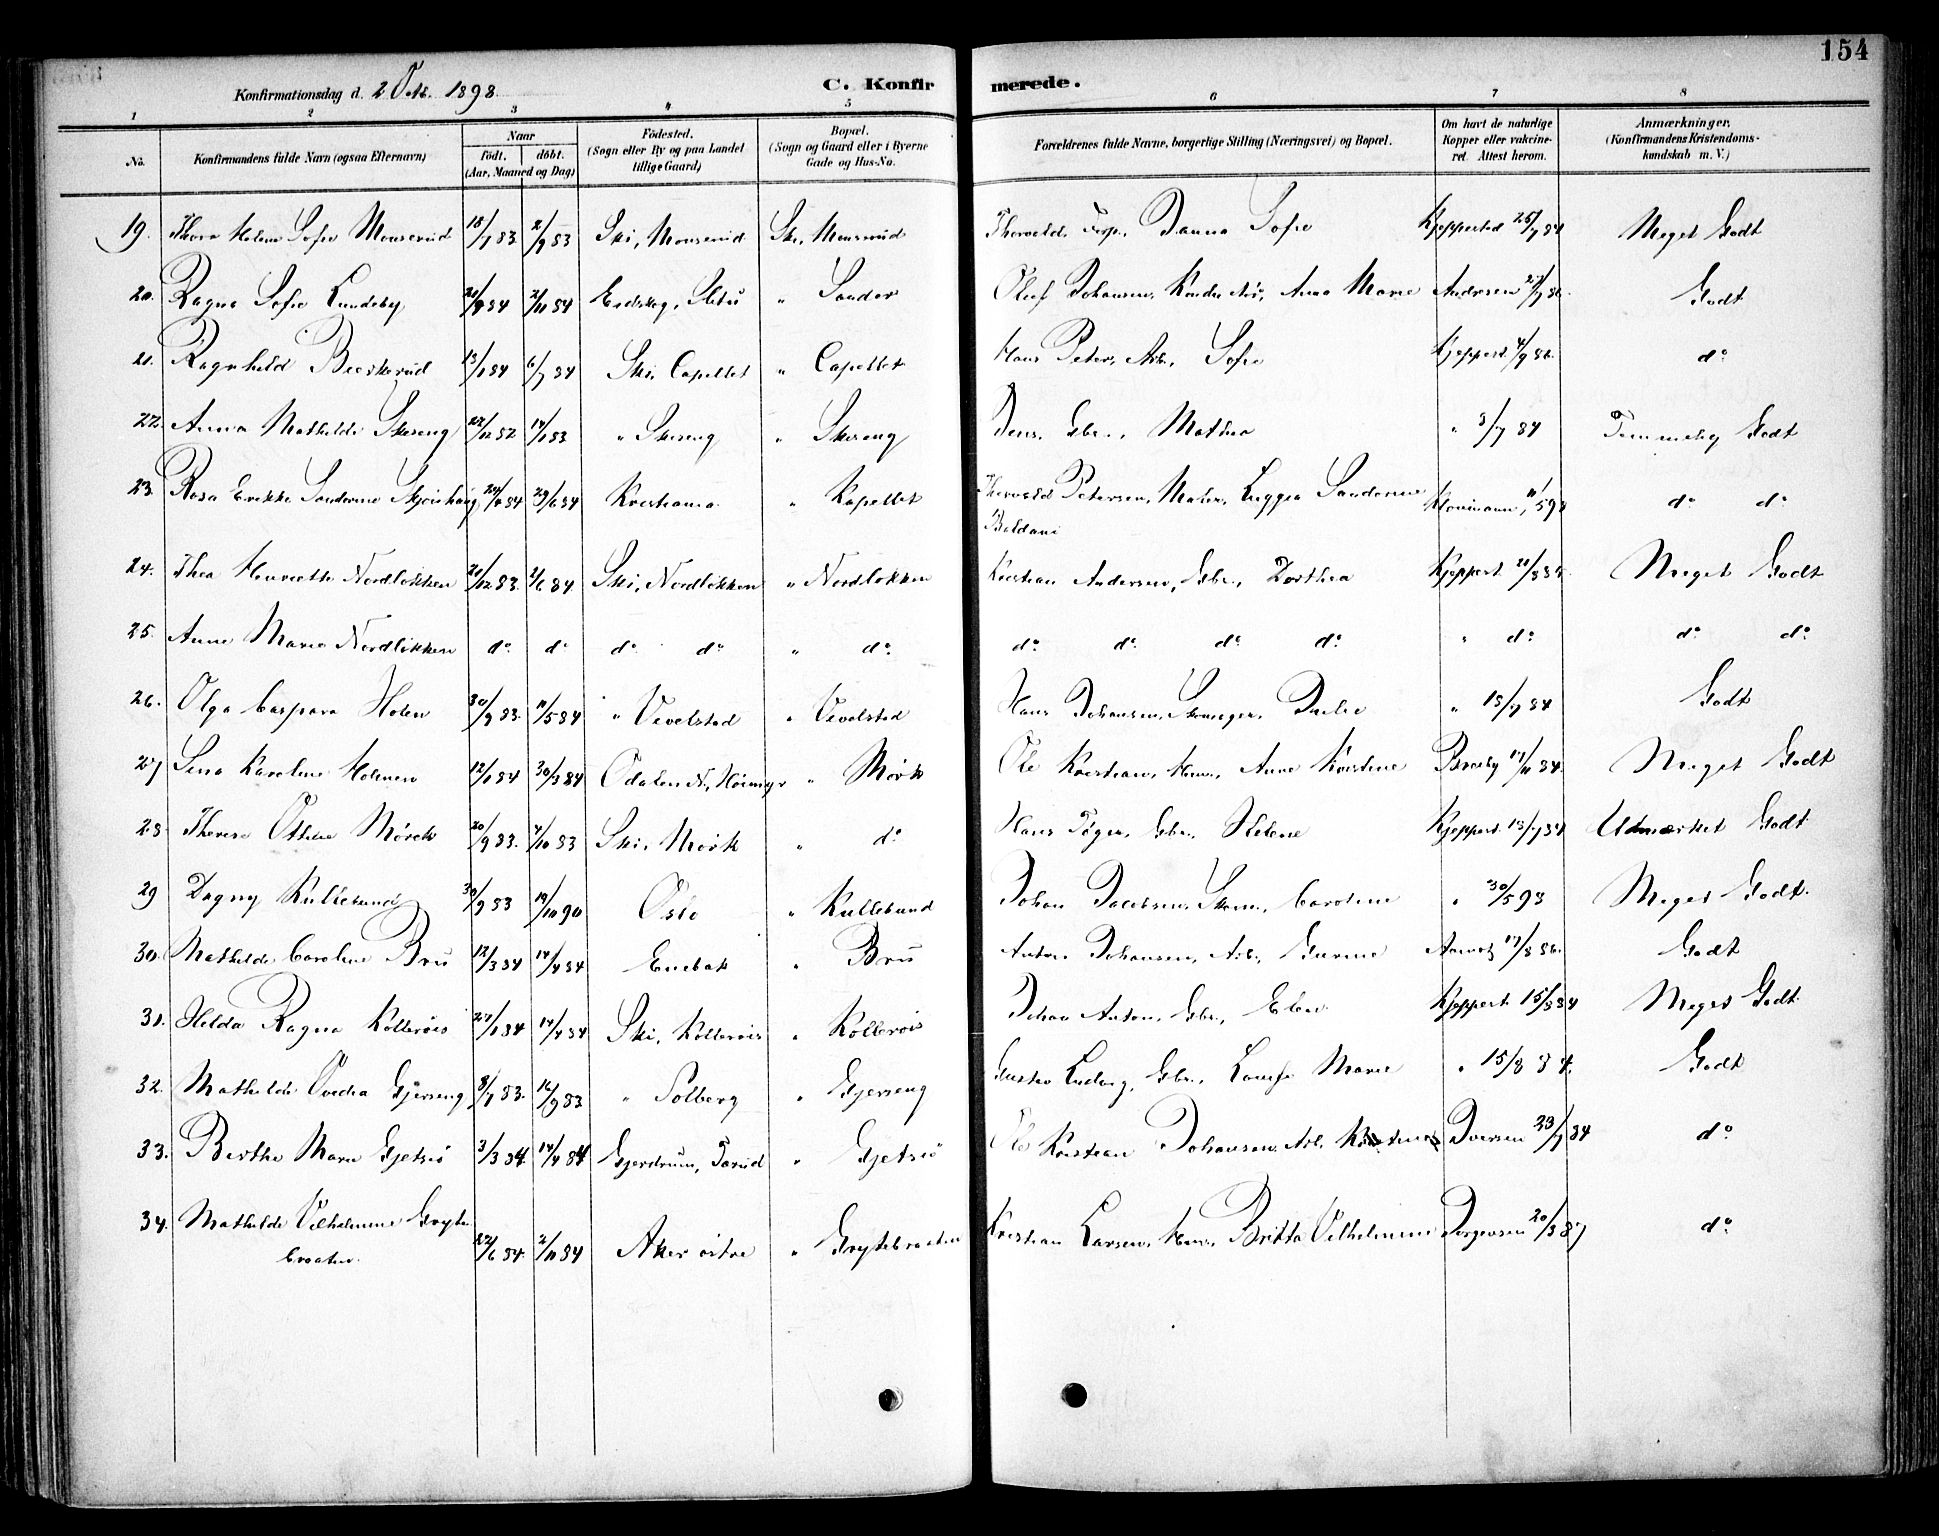 154
Konfirmationsdag d. 2 Oct. 1898.
C. Konfirmerede.
1 2 3 4 5 6 7 8
No. Konfirmandens fulde Navn (ogsaa Efternavn) Naar født. døbt. (Aar, Maaned og Dag) Fødested. (Sogn eller By og paa Landet tillige Gaard) Bopæl. (Sogn og Gaard eller i Byerne Gade og Hus-No. Forældrenes fulde Navne, borgerlige Stilling (Næringsvei) og Bopæl. Om havt de naturlige Kopper eller vakcineret. Attest herom. Anmærkninger, (Konfirmandens Kristendomskundskab m. V.)
19. Thora Helene Sofie Monserud 18/7 83. 2/9 83 Ski, Monserud Ski, Monserud Thorvald, Sofie Kjoppestad 25/7 84 Meget Godt
20. Ragna Sofie Lundeby 20/8 84 2/11 84 Eidskog, " Sander Oluf Johansen, Anna Marie Andresen Godt
21. Ragnhild Bierkerud 13/1 84 6/7 84 Ski, Capellet " Capellet Hans Peter, Arb., Sofie Kjoppest. 4/9 86. do
22. Anna Mathilde Skereng 22/12 82 14/1 83 " Skereng " Skereng Jens, Gbr., Mathea " 3/7 84 Temmelig Godt
23. Rosa Sandorine 29/6 84 Kristiania " Kapellet Thorvald Petersen, Maler, Sandorine do do
24. Thea Henriette Nordløkken 20/12 83. 2/6 84. Ski, Nordløkken " Nordløkken Kristian Andersen, Gbr., Dorthea Kjoppest. Meget Godt
25. Anne Marie Nordløkken do do do do " do. do. do. do. do. " do. do do
26. Olga Caspara Holen 30/9 83. 11/5 84 " Vevelstad " Vevelstad Hans Johansen, Julie " 15/7 84 Godt
27 Lina Karoline Holmen 12/1 84 30/3 84 Odalen N., " Mørk Ole Kristian, Anne Kirstine Braaby 14/11 84. Meget Godt
28 Therese Othilie Mørck 20/9 83. 4/10 83 Ski, Mørk " do Hans Gbr. Helene Kjoppest. 15/7 84 Udmærket Godt
29 Dagny Kullebund 30/9 83 19/10 90 Oslo " Kullebund Johan Jacobsen, Skom., Caroline " 30/5 93 Meget Godt.
30. Mathilde Caroline Bru 12/3 84 14/4 84 Enebak " Bru Anton Johansen, Arb., Gurine 17/8 86. Godt
31. Hilda Ragna Kollerøis 27/1 84 14/4 84 Ski, Kollerøis " Kollerøis Johan Anton, Gbr., Elen Kjoppest. 15/8 84 Meget Godt.
32. Mathilde Ovedia Gjerseng 8/7 83. 16/9 83 " Solberg " Gjerseng Gustav Ludvig, Gbr., Lovise Marie " 15/8 84. Godt
33. Berthe Marie Gjetsiø 3/3 84. 14/4 84 Gjerdrum, " Gjetsiø Ole Kristian Johansen, Arb., Iversen 23/7 84 do
34. Mathilde Vilhelmine Grytebraaten. 22/6 84. 2/11 84 Aker østre " Grytebraaten Kristian Larsen, Britta Vilhelmine Jørgensen 20/3 87 do